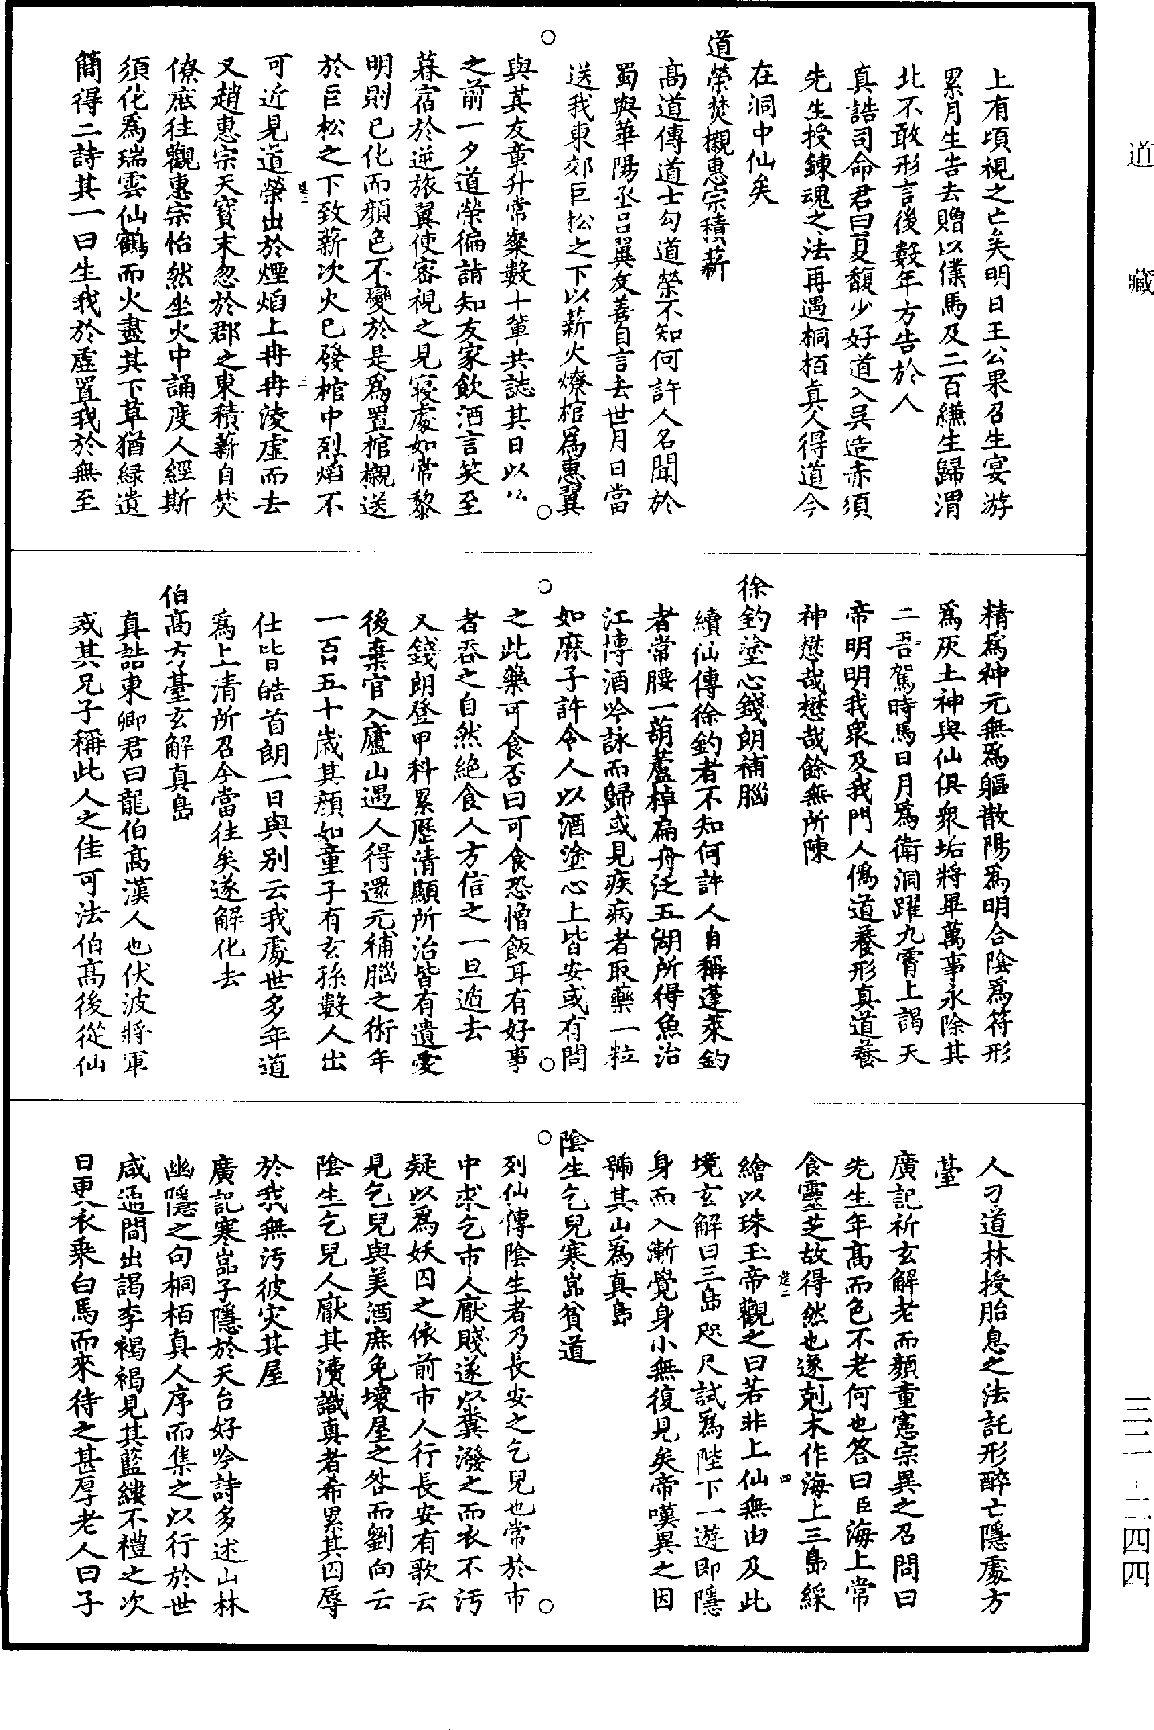 道藏
三二-二四四
上有頃視之亡矣明日王公果召生宴游
累月生告去贈以僕馬及二百縑生歸渭
北不敢形言後數年方告於人
真誥司命君曰夏馥少好道入吳造赤須
先生授鍊魂之法再遇桐栢真人得道今
在洞中仙矣
道榮焚櫬惠宗積薪
高道傳道士勾道榮不知何許人名聞於
蜀與華陽丞呂翼友善自言去世月日當
送我東郊巨松之下以薪火燎棺爲惠翼
與其友章升常粲數十輩共誌其日以
之前一夕道榮徧詣知友家飲酒言笑至
暮宿於逆旅翼使密視之見寢處如常黎
明則已化而顏色不變於是爲置棺櫬送
於巨松之下致薪次火已發棺中烈焰不
可近見道榮出於煙焰上冉冉淩虛而去
又趙惠宗天寶末忽於郡之東積薪自焚
僚庶往觀惠宗怡然坐火中誦度人經斯
須化爲瑞雲仙鶴而火盡其下草猶緑遺
簡得二詩其一曰生我於虛置我於無至
精爲神元無爲軀散陽爲明合陰爲符形
爲灰土神與仙俱衆垢將畢萬事永除其
二吾駕時馬日月爲衛洞躍九霄上謁天
帝明明我衆及我門人僞道養形真道養
神懋哉懋哉餘無所陳
徐釣塗心錢朗補腦
續仙傳徐釣者不知何許人自稱蓬萊釣
者常腰一葫蘆棹扁舟泛五湖所得魚治
江博酒吟詠而歸或見疾病者取藥一粒
如麻子許令人以酒塗心上皆安或有問
之此藥可食否曰可食恐憎飯耳有好事
者吞之自然絶食人方信之一旦遁去
又錢朗登甲科累歷清顯所治皆有遺愛
後棄官入廬山遇人得還元補腦之術年
一百五十歲其顏如童子有玄孫數人出
仕皆皓首朗一日與别云我處世多年道
爲上清所召今當往矣遂解化去
伯高方臺玄解真島
真誥東卿君曰龍伯高漢人也伏波將軍
戒其兄子稱此人之佳可法伯高後從仙
人刁道林授胎息之法託形醉亡隱處方
臺
廣記祈玄解老而顏童憲宗異之召問曰
先生年高而色不老何也答曰臣海上常
食靈芝故得然也遂剋木作海上三島綵
繪以珠玉帝觀之曰若非上仙無由及此
境玄解曰三島咫尺試爲陛下一遊即隱
身而入漸覺身小無復見矣帝嘆異之因
號其山爲真島
陰生乞兒寒嵓貧道
列仙傳陰生者乃長安之乞兒也常於市
中求乞市人厭賤遂以糞潑之而衣不污
疑以爲妖囚之依前市人行長安有歌云
見乞兒與美酒庶免壞屋之咎而劉向云
陰生乞兒人厭其瀆識真者希累其囚辱
於我無污彼灾其屋
廣記寒嵓子隱於天台好吟詩多述山林
幽隱之句桐栢真人序而集之以行於世
咸通間出謁李褐褐見其藍縷不禮之次
日更衣乘白馬而來待之甚厚老人曰子